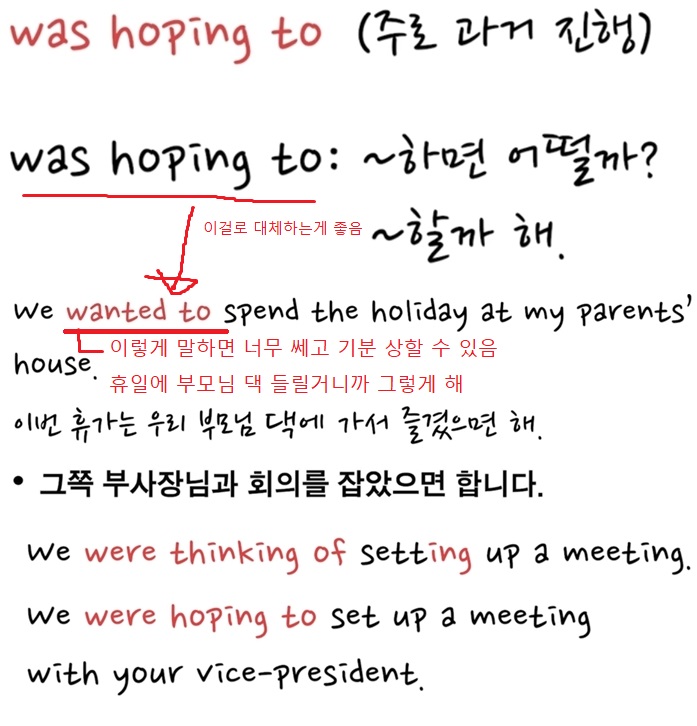 was hoping to (주로 과거 진행)
was hoping to: ~하면 어떨까?
이걸로 대체하는게 좋음
~할까 해.
We wanted to spend the holiday at my parents'
이렇게 말하면 너무 쎄고 기분 상할 수 있음
house.
휴일에 부모님 댁 들릴거니까 그렇게 해
이번 휴가는 우리 부모님 댁에 가서 즐겼으면 해.
• 그쪽 부사장님과 회의를 잡았으면 합니다.
We were thinking of setting up a meeting.
We were hoping to set up a meeting
with your vice-president.